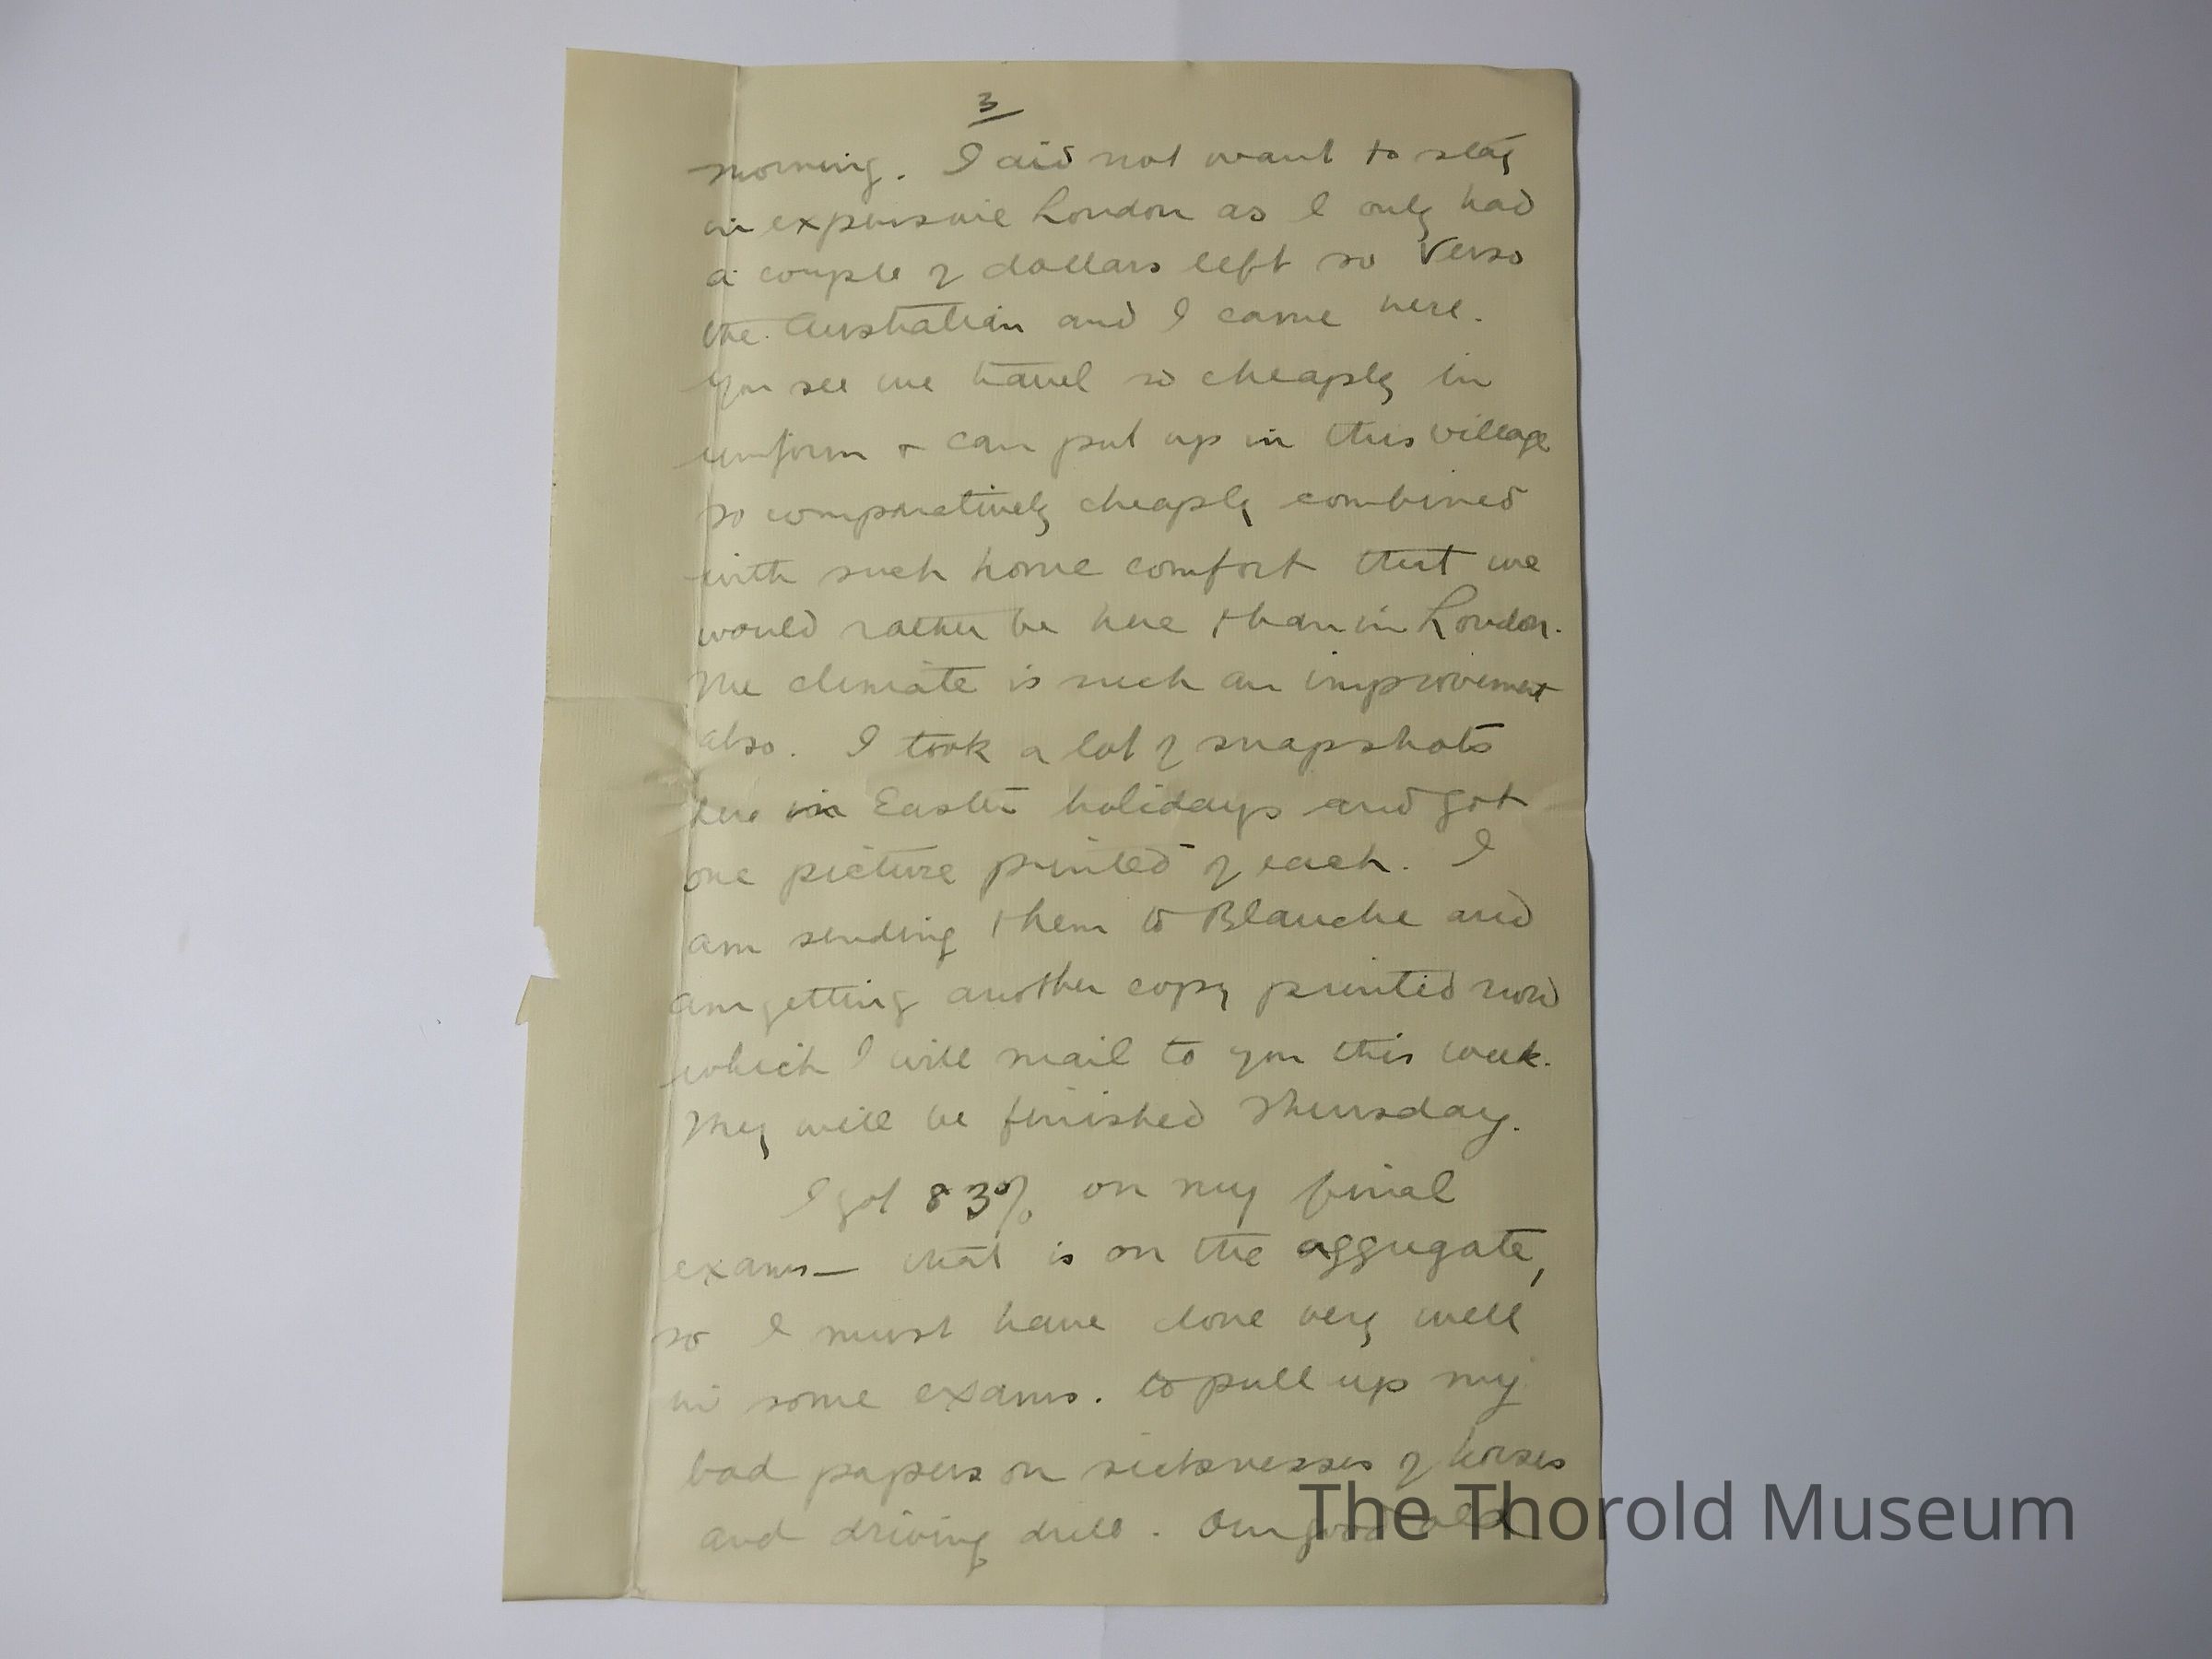 3
morning. I did not want to stay
in expensive London as I only had
a couple of dollars left so Verso
the Australian and I came here.
You see we travel so cheaply in
uniform + can put up in this village
so comparatively cheaply combined
with such home comfort that we
would rather be here than in London.
The climate is such an improvement
also. I took a lot of snapshots
here in Easter holidays and got
one picture printed of each. I
am sending them to Blanche and
am getting another copy printed now
which I will mail to you this week.
They will be finished Thursday.
I got 83% on my final
exams — that is on the aggregate,
so I must have done very well
in some exams. to pull up my
bad papers on sicknesses of horses
and driving drill. Our good old
The Thorold Museum